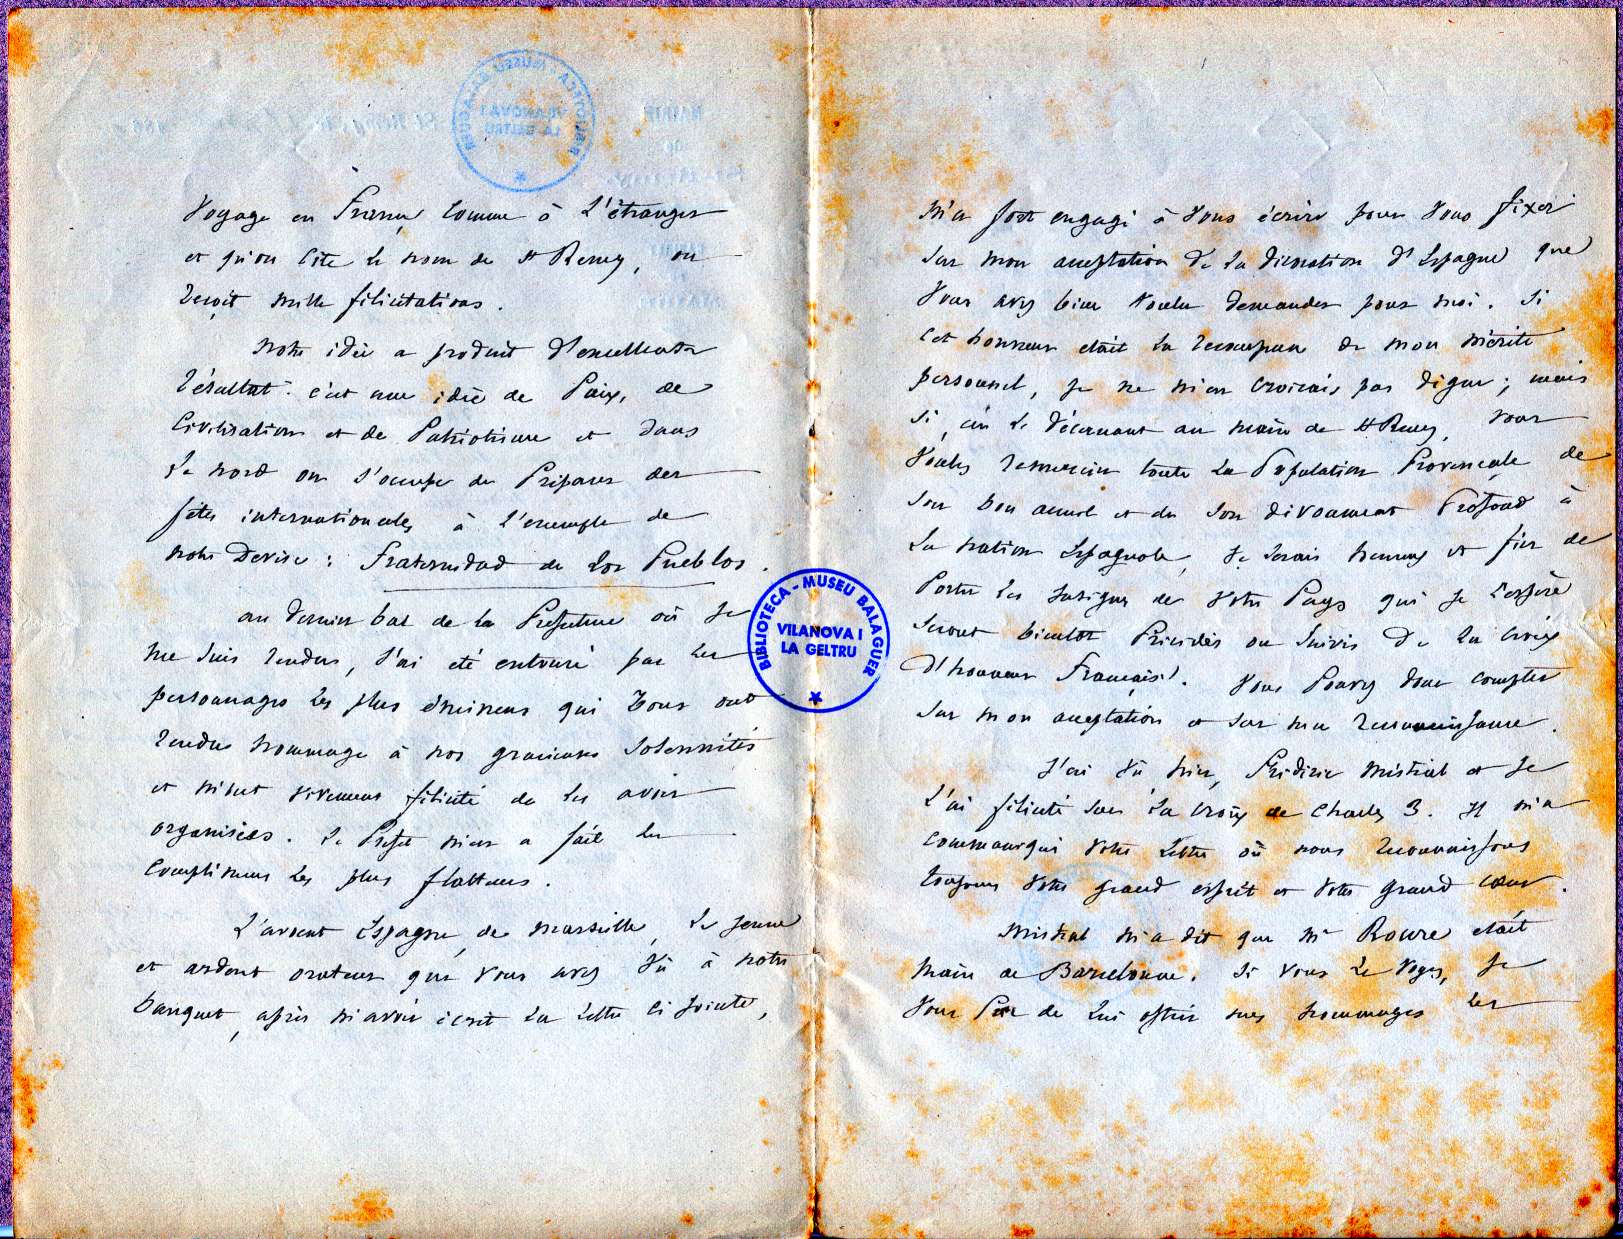 Voyage en France comme à L'étranger
et qu'on Cite le nom de St Remy, on
reçoit mille félicitations.
Notre idée a produit d'excellents
résultat. c'est une idée de Paix, de
Civilisation et de Patriotisme et dans
Le nord on s'occupe de Préparer des
fêtes internationales à l'exemple de
notre Devise : Fraternidad de Los Pueblos.
au dernier bal de la Prefecture où je
me suis rendu, J'ai été entouré par les
personnages les plus éminens qui Tous ont
rendu hommage à nos gracieuses Solennités
et m'ont vivement félicité de les avoir
organisées. Le Préfet m'en a fait les
Complimens les plus flatteurs.
L'avocat Espagne, de Marseille, le jeune
et ardent orateur que vous avez vû à notre
banquet, après m'avoir écrit la lettre ci jointe,
BIBLIOTECA - MUSEU BALAGUER
VILANOVA I
LA GELTRU
M'a fort engagé à vous écrire pour vous fixer
sur mon acceptation de la décoration d'Espagne que
vous avez bien voulu demander pour moi. Si
cet honneur était la récompense de mon mérite
personnel, je ne m'en croirais pas digne ; mais
si, en le décernant au maire de St Remy, vous
voulez remercier toute la Population Provençale de
son bon accueil et de son dévouement Profond à
la nation Espagnole, je serais heureux et fier de
Porter les insignes de votre Pays qui je l'espère
seront bientôt Précédés ou suivis de la croix
d'honneur Française. Vous Pouvez donc compter
sur mon acceptation et sur ma reconnaissance.
J'ai vû hier, Frédéric Mistral et je
L'ai félicité sur la croix de Charles 3. Il m'a
communiqué votre Lettre où nous reconnaissons
toujours votre grand esprit et votre grand coeur.
Mistral m'a dit que Mr Roure était
maire de Barcelonne. Si vous le voyez, je
vous Prie de lui offrir mes hommages les